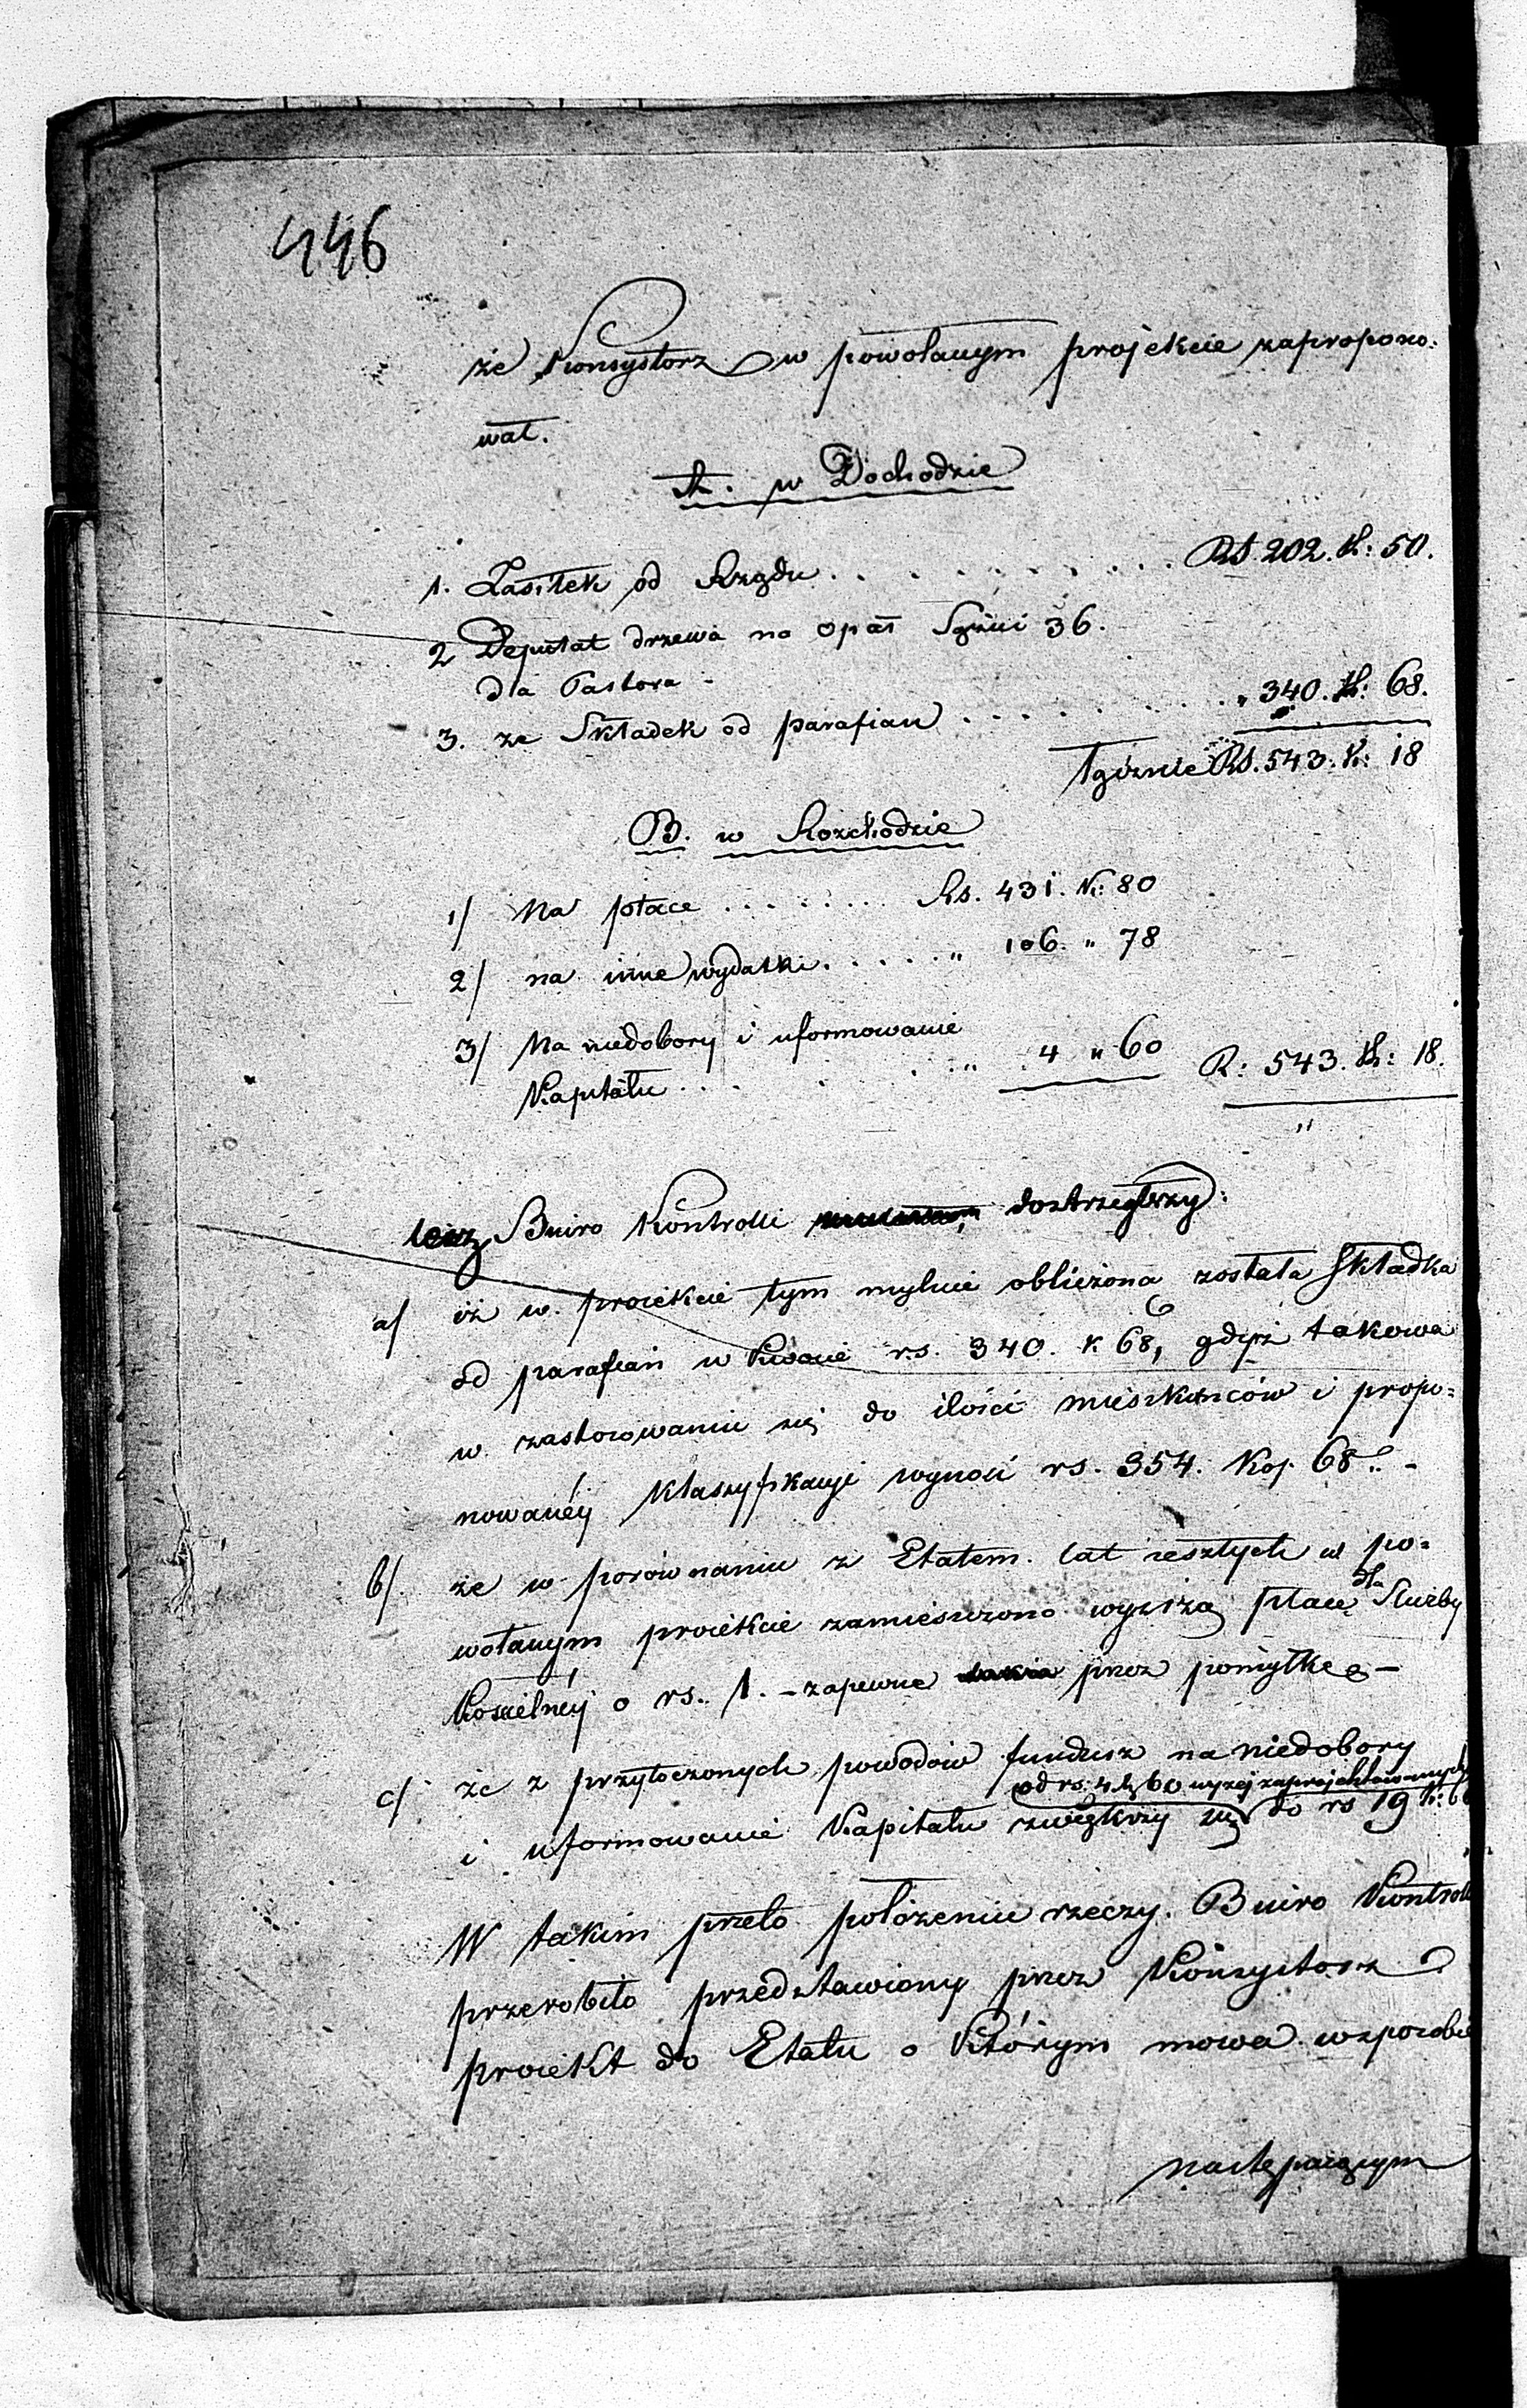 446
że Konsystorz w powołanym projekcie zapropono-
wał.
A. w Dochodzie
1. Zasiłek od Rządu . . . . . . . . . . . RS. 202. K: 50.
2 Deputat drzewa na opał Sążni 36.
dla Pastora -
3. ze Składek od parafian . . . . . . . . . „ 340. K: 68.
Ogółnie RS. 543. K: 18
B. w Rozchodzie
1/ Na płace . . . . . . . . Rs. 431. K: 80
2/ na inne wydatki . . . . . „ 106. „ 78
3/ Na niedobory i uformowanie
Kapitału . . . . . „ 4 „ 60 R: 543. K: 18.
„
lecz Biuro Kontrolli dostrzegłszy:
a/ iż w. proiekcie tym mylnie obliczona została Składka
od parafian w kwocie rs. 340. k 68, gdyż takowa
w. zastosowaniu się do ilości mieszkańców i propo=
nowanéj klassyfikacyi wynosi rs. 354. Kop. 68. -
b/. że w porównaniu z Etatem. lat zeszłych w po=
wołanym proiekcie zamieszczono wyższą płacę dla Służby
Kościelnéj o rs. 1. - zapewne przez pomyłkę -
c/ że z przytoczonych powodów fundusz na niedobory
od rs. 4 k 60 wyżej zaprojektowanych
i uformowanie Kapitału zwiększy się do rs 19 k: 6
W takim przeto położeniu rzeczy. Biuro Kontroll
przerobiło przedstawiony przez Konsystorz
proiekt do Etatu o którym mowa w sposobie
następującym